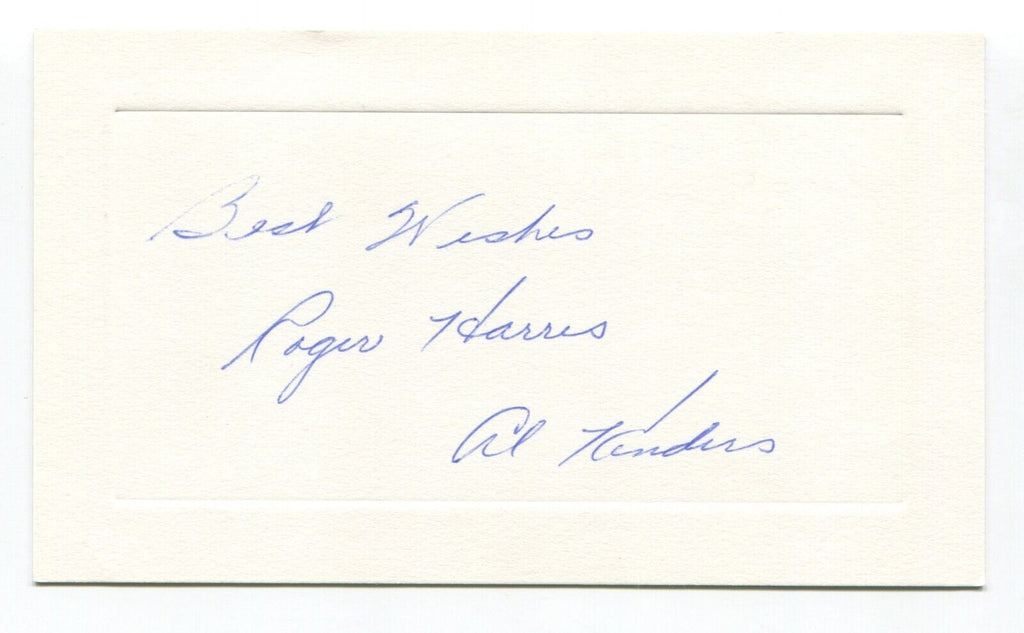 Best Wishes
Roger Harris
Al